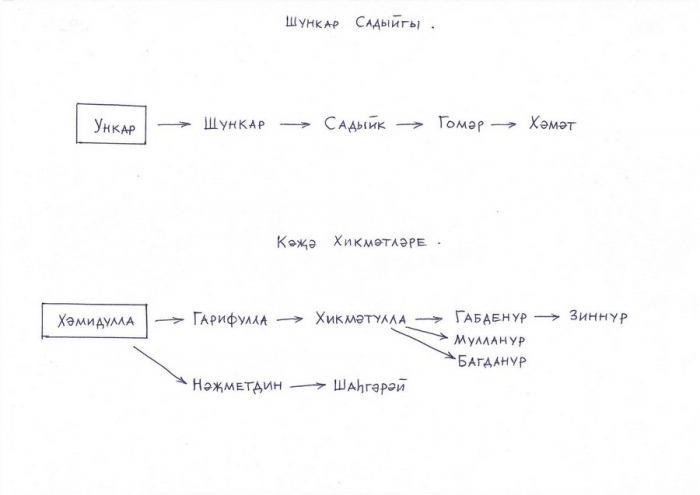 Шункар Садыйгы.
Ункар → Шункар → Садыйк → Гомәр → Хәмәт
Кәҗә Хикмәтләре.
Хәмидулла → Гарифулла → Хикмәтулла → Габденур → Зиннур
Мулланур
Багданур
Нәҗметдин → Шаһгәрәй